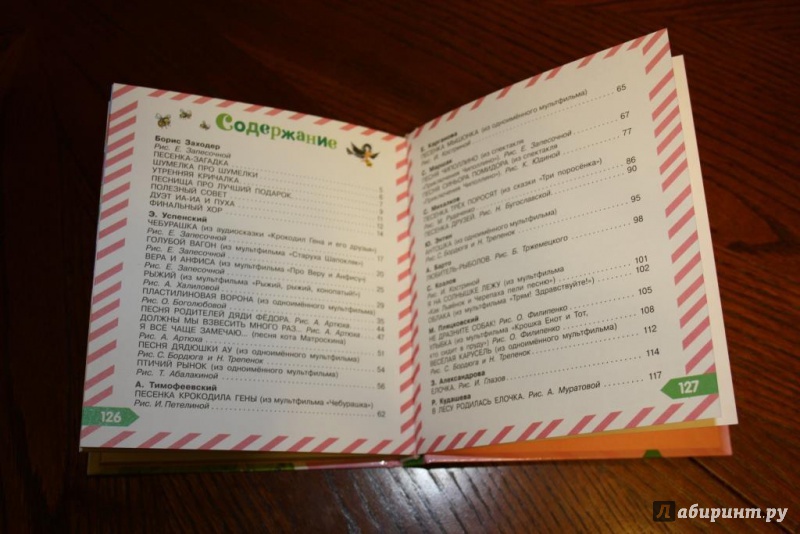 Содержание
Борис Заходер
Рис. Е. Запесочной
ПЕСЕНКА-ЗАГАДКА
ШУМЕЛКА ПРО ШУМЕЛКИ
УТРЕННЯЯ КРИЧАЛКА
ПЕСНИЩА ПРО ЛУЧШИЙ ПОДАРОК
ПОЛЕЗНЫЙ СОВЕТ
ДУЭТ ИА-ИА И ПУХА
ФИНАЛЬНЫЙ ХОР 14
Э. Успенский
ЧЕБУРАШКА (из аудиосказки «Крокодил Гена и его друзья»)
Рис. Е. Запесочной 17
ГОЛУБОЙ ВАГОН (из мультфильма «Старуха Шапокляк»)
Рис. Е. Запесочной 20
ВЕРА И АНФИСА (из мультфильма «Про Веру и Анфису»)
Рис. Е. Запесочной
РЫЖИЙ (из мультфильма «Рыжий, рыжий, конопатый!»)
Рис. А. Халиловой
ПЛАСТИЛИНОВАЯ ВОРОНА (из одноимённого мультфильма)
Рис. О. Боголюбовой 35
ПЕСНЯ РОДИТЕЛЕЙ ДЯДИ ФЁДОРА. Рис. А. Артюха 44
ДОЛЖНЫ МЫ ВЗВЕСИТЬ МНОГО РАЗ... Рис. А. Артюха 47
Я ВСЁ ЧАЩЕ ЗАМЕЧАЮ... (песня кота Матроскина)
Рис. А. Артюха 51
ПЕСНЯ ДЯДЮШКИ АУ (из одноимённого мультфильма)
Рис. С. Бордюга и Н. Трепенок 54
ПТИЧИЙ РЫНОК (из одноимённого мультфильма)
Рис. Т. Абалакиной 56
А. Тимофеевский
ПЕСЕНКА КРОКОДИЛА ГЕНЫ (из мультфильма «Чебурашка»)
Рис. И. Петелиной 62
126
Е. Карганова
ПЕСЕНКА МЫШОНКА (из одноимённого мультфильма)
Рис. И. Костриной 65
С. Маршак
ПЕСНЯ ЧИПОЛЛИНО (из спектакля
«Приключения Чиполлино»). Рис. Е. Запесочной 67
ПЕСНЯ СИНЬОРА ПОМИДОРА (из спектакля
«Приключения Чиполлино»). Рис. К. Юдиной 77
С. Михалков
ПЕСЕНКА ТРЁХ ПОРОСЯТ (из сказки «Три поросёнка»)
Рис. М. Рудаченко 86
ПЕСЕНКА ДРУЗЕЙ. Рис. Н. Бугославской 90
Ю. Энтин
АНТОШКА (из одноимённого мультфильма)
Рис. С. Бордюга и Н. Трепенок 95
А. Барто
ЛЮБИТЕЛЬ-РЫБОЛОВ. Рис. Б. Тржемецкого 98
С. Козлов
Рис. И. Костриной
Я НА СОЛНЫШКЕ ЛЕЖУ (из мультфильма
«Как Львёнок и Черепаха пели песню») 101
ОБЛАКА (из мультфильма «Трям! Здравствуйте!») 102
М. Пляцковский
НЕ ДРАЗНИТЕ СОБАК! Рис. О. Филипенко 105
УЛЫБКА (из мультфильма «Крошка Енот и Тот,
кто сидит в пруду») Рис. О. Филипенко 108
ВЕСЁЛАЯ КАРУСЕЛЬ (из одноимённого мультфильма)
Рис. С. Бордюга и Н. Трепенок 112
З. Александрова
ЕЛОЧКА. Рис. И. Глазов 114
Р. Кудашева
В ЛЕСУ РОДИЛАСЬ ЕЛОЧКА. Рис. А. Муратовой 117
127
Лабиринт.ру